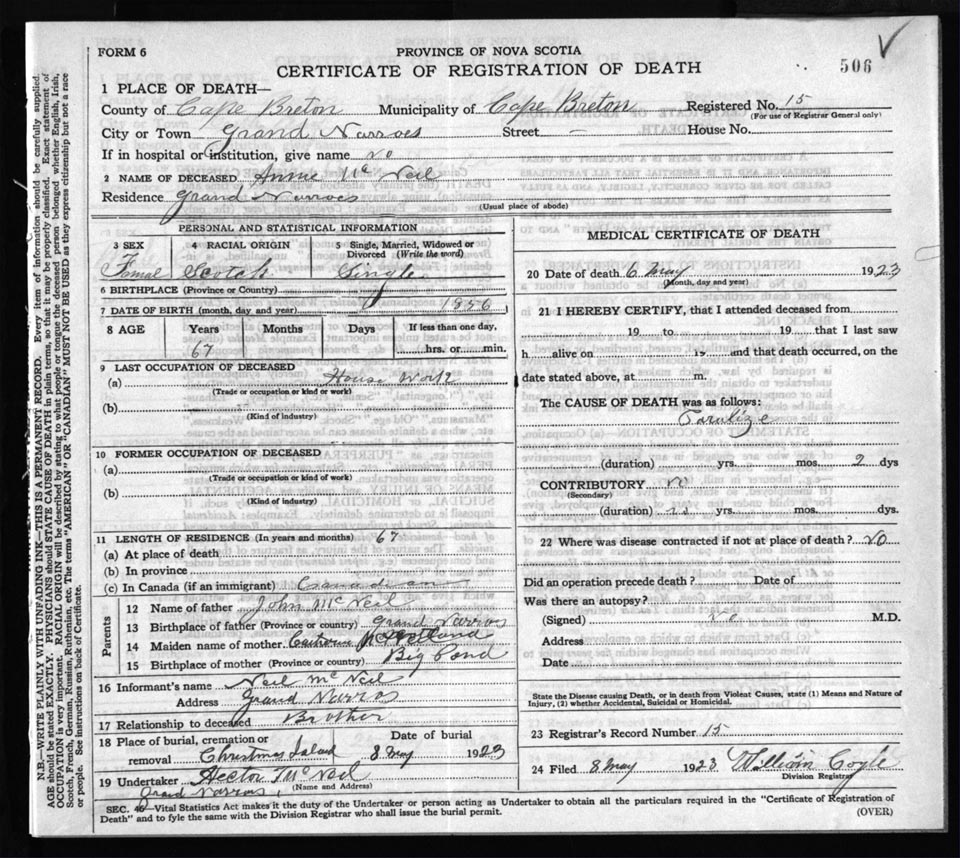 FORM 6
PROVINCE OF NOVA SCOTIA
CERTIFICATE OF REGISTRATION OF DEATH
506
1 PLACE OF DEATH—
County of Cape Breton Municipality of Cape Breton Registered No. 15
(For use of Registrar General only)
City or Town Grand Narroes Street — House No.
If in hospital or institution, give name no
2 NAME OF DECEASED Annie Mc Neil
Residence Grand Narroes
(Usual place of abode)
PERSONAL AND STATISTICAL INFORMATION
3 SEX 4 RACIAL ORIGIN 5 Single, Married, Widowed or Divorced (Write the word)
Femal Scotch Single
6 BIRTHPLACE (Province or Country)
7 DATE OF BIRTH (month, day and year) 1856
8 AGE Years Months Days If less than one day,
67 hrs. or min.
9 LAST OCCUPATION OF DECEASED
(a) House Work
(Trade or occupation or kind or work)
(b)
(Kind of industry)
10 FORMER OCCUPATION OF DECEASED
(a)
(Trade or occupation or kind of work)
(b)
(Kind of industry)
11 LENGTH OF RESIDENCE (In years and months) 67
(a) At place of death
(b) In province
(c) In Canada (if an immigrant) Canadian
Parents
12 Name of father John McNeil
13 Birthplace of father (Province or country) Grand Narrows
14 Maiden name of mother
15 Birthplace of mother (Province or country) Big Pond
16 Informant's name Neil Mc Neil
Address Grand Narros
17 Relationship to deceased Brother
18 Place of burial, cremation or removal Christmas Island
Date of burial
8 May 1923
19 Undertaker Hector McNeil
(Name and Address)
Grand Narrows
MEDICAL CERTIFICATE OF DEATH
20 Date of death 6 May 1923
(Month, day and year)
21 I HEREBY CERTIFY, that I attended deceased from
19 to 19 that I last saw
h alive on 19 and that death occurred, on the
date stated above, at m.
The CAUSE OF DEATH was as follows:
Paralize
(duration) yrs. mos. 2 dys
CONTRIBUTORY no
(Secondary)
(duration) yrs. mos. dys.
22 Where was disease contracted if not at place of death? NO
Did an operation precede death? Date of
Was there an autopsy?
(Signed) no M.D.
Address
Date
State the Disease causing Death, or in death from Violent Causes, state (1) Means and Nature of
Injury, (2) whether Accidental, Suicidal or Homicidal.
23 Registrar's Record Number 15
24 Filed 8 May 1923 William Coyle
Division Registrar
SEC. —Vital Statistics Act makes it the duty of the Undertaker or person acting as Undertaker to obtain all the particulars required in the "Certificate of Registration of
Death" and to fyle the same with the Division Registrar who shall issue the burial permit.
(OVER)
N.B.—WRITE PLAINLY WITH UNFADING INK—THIS IS A PERMANENT RECORD. Every item of information should be carefully supplied.
AGE should be stated EXACTLY. PHYSICIANS should STATE CAUSE OF DEATH in plain terms, so that it may be properly classified. Exact statement of
OCCUPATION is very important. RACIAL ORIGIN will be described by stating to what people or tongue the deceased person belonged whether English, Irish,
Scotch, French, German, Russian, Ruthenian, etc. The terms "AMERICAN" OR "CANADIAN" MUST NOT BE USED as they express citizenship but not a race
or people. See instructions on back of Certificate.